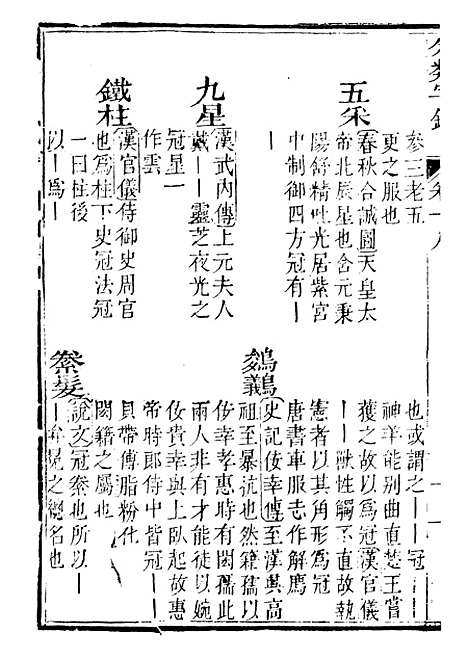 分類字錦
卷十八
參三老五
更之服也
五采
春秋合誠圖天皇太
帝北辰星也含元秉
陽舒精吐光居紫宮
中制御四方冠有丨丨
九星
漢武內傳上元夫人
戴丨丨靈芝夜光之
冠星一
作雲
鐵柱
漢官儀侍御史周官
也爲柱下史冠法冠
一曰柱後
以丨爲丨
也或謂之丨丨冠
神羊能別曲直楚王嘗
獲之故以爲冠漢官儀
丨丨獸性觸不直故執
憲者以其角形爲冠
唐書車服志作解廌
鵕鸃
史記佞幸傳至漢興高
祖至暴抗也然籍孺以
佞幸孝惠時有閎孺此
兩人非有才能徒以婉
佞貴幸與上臥起故惠
帝時郎侍中皆冠丨丨
貝帶傅脂粉化
閎籍之屬也
絭髮
說文冠絭也所以丨
丨弁冕之總名也